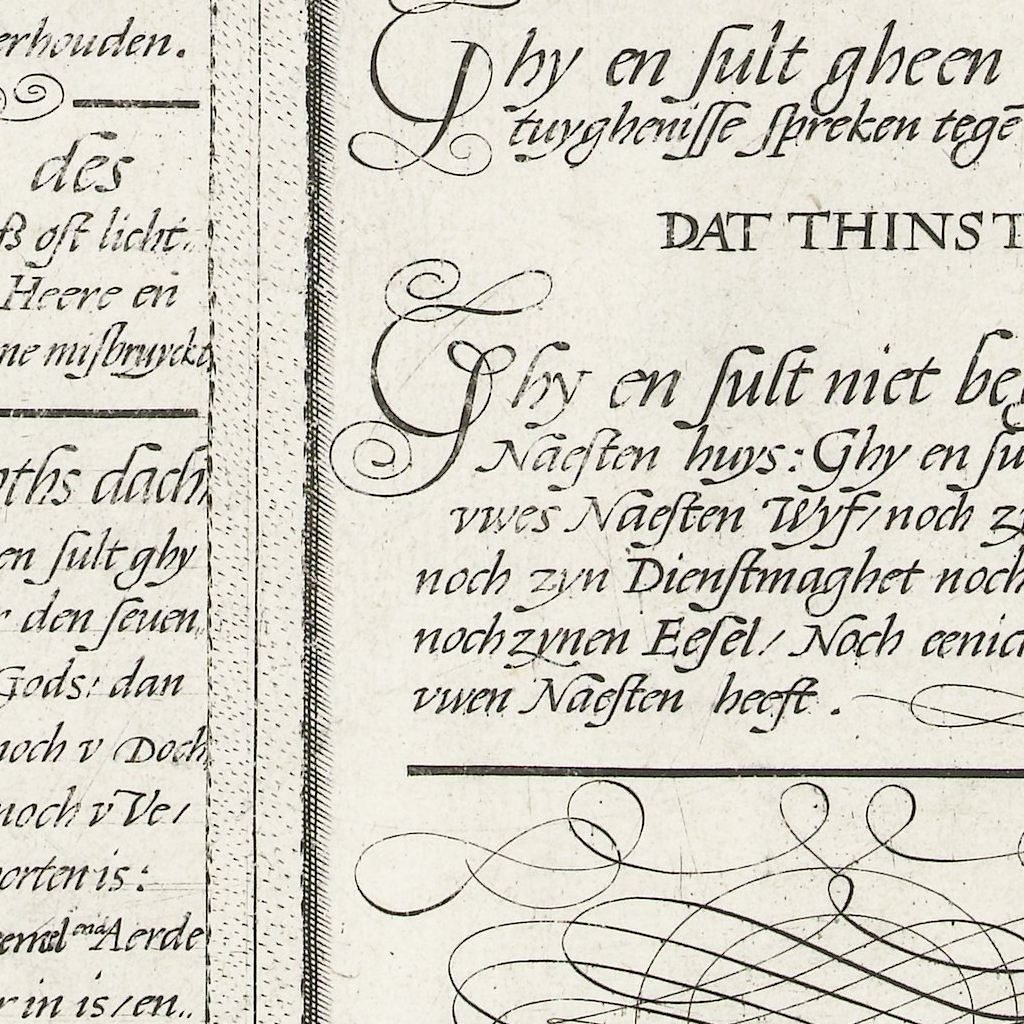 erhouden.
des
ß oft licht.
Heere en
ne misbruyckt
ths dach
en sult ghy
r den seuen
Gods: dan
noch v Doch
noch v Ve/
orten is:
emel end Aerde
r in is/en..
Ghy en sult gheen
tuyghenisse spreken tegē
DAT THINST
Ghy en sult niet beg
Naesten huys: Ghy en su
vwes Naesten Wyf/ noch z
noch zyn Dienstmaghet noch
noch zynen Eesel/ Noch eenich
vwen Naesten heeft.